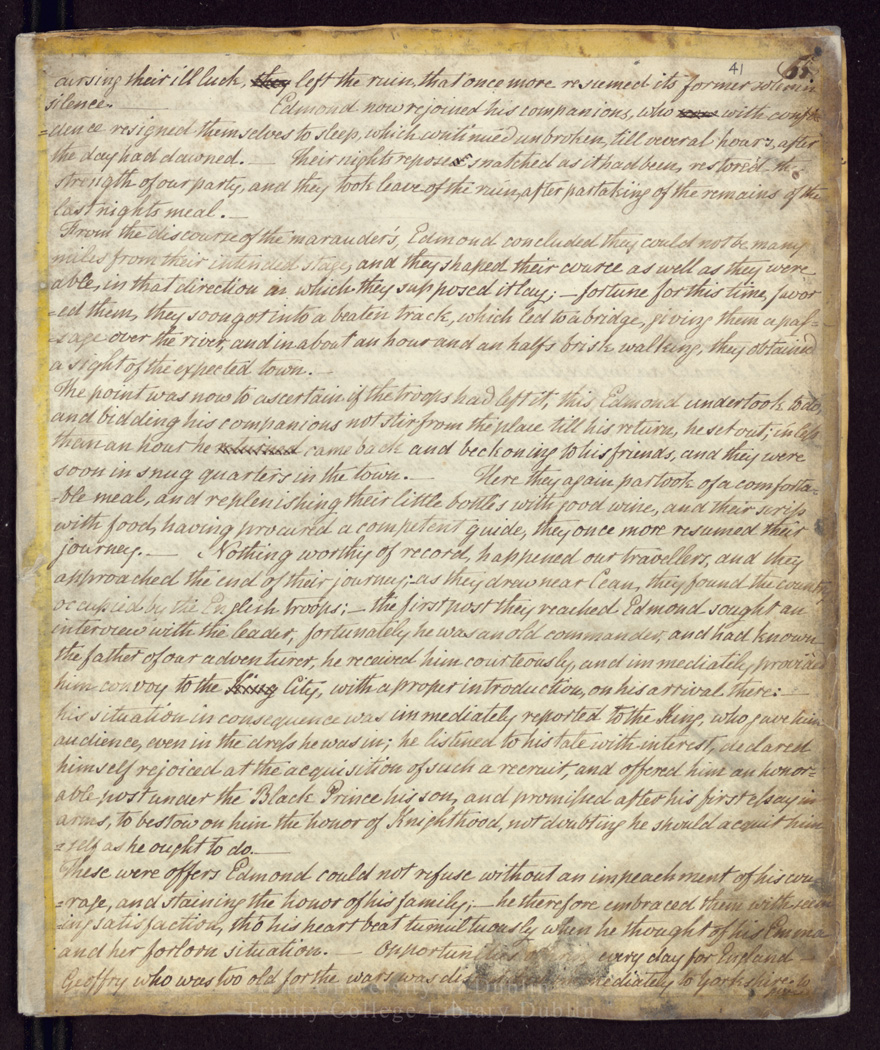 41 65.
cursing their ill luck, they left the ruin, that once more resumed its former solemn
silence. Edmond now rejoined his companions, who with confi
=dence resigned themselves to sleep, which continued unbroken, till several hours, after
the day had dawned. — Their nights repose, snatched as it had been, restored the
strength of our party, and they took leave of the ruin, after partaking of the remains of the
last nights meal. —
From the discourse of the marauder's, Edmond concluded they could not be many
miles from their intended stage, and they shaped their cource as well as they were
able, in that direction in which they supposed it lay; — fortune for this time, favor
=ed them, they soon got into a beaten track, which led to a bridge, giving them a pas=
=sage over the river, and in about an hour and an half's brisk walking, they obtained
a sight of the expected town. —
The point was now to ascertain if the troops had left it, this Edmond undertook to do,
and bidding his companions not stir from the place till his return, he set out; in less
than an hour he returned came back and beckoning to his friends, and they were
soon in snug quarters in the town. — Here they again partook of a comforta=
=ble meal, and replenishing their little bottles with good wine, and their scrips
with food, having procured a competent guide, they once more resumed their
journey. — Nothing worthy of record, happened our travellers, and they
approached the end of their journey; as they drew near Cean, they found the country
occupied by the English troops; — the first post they reached Edmond sought an
interview with the leader, fortunately he was an old commander, and had known
the father of our adventurer, he received him courteously, and immediately provided
him convoy to the King City, with a proper introduction, on his arrival there: —
his situation in consequence was immediately reported to the King, who gave him
audience, even in the dress he was in; he listened to his tale with interest, declared
himself rejoiced at the acquisition of such a recruit, and offered him an honor=
able post under the Black Prince his son, and promised after his first essay in
arms, to bestow on him the honor of Knighthood, not doubting he should acquit him
=self as he ought to do. —
These were offers Edmond could not refuse without an impeachment of his cou
=rage, and staining the honor of his family; — he therefore embraced them with seem
=ing satisfaction, tho his heart beat tumultuously when he thought of his Emma
and her forlorn situation. — Opportunities every day for England —
Geoffry who was too old for the wars was immediately to Yorkshire, to
Trinity College Library Dublin